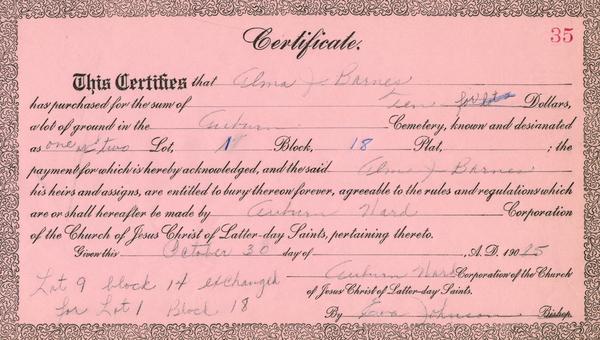 Certificate.
35
This Certifies that Alma J. Barnes
has purchased for the sum of Ten for lot Dollars,
a lot of ground in the Auburn Cemetery, known and designated
as one & two Lot, Block, 18 Plat, ; the
payment for which is hereby acknowledged, and the said Alma J. Barnes
his heirs and assigns, are entitled to bury thereon forever, agreeable to the rules and regulations which
are or shall hereafter be made by Auburn Ward Corporation
of the Church of Jesus Christ of Latter-day Saints, pertaining thereto.
Given this October 30 day of , A. D. 190 25
Auburn Ward Corporation of the Church
of Jesus Christ of Latter-day Saints.
By Johnson Bishop.
Lot 9 block 14 exchanged
for Lot 1 Block 18